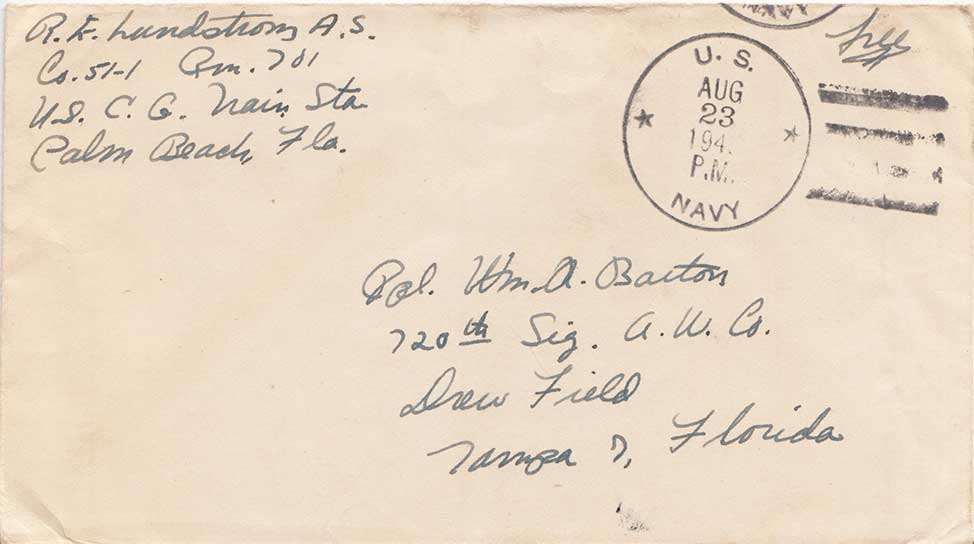 R. E. Lundstrom A.S.
Co. 51-1 Rm. 701
U.S. C. G. Train. Sta.
Palm Beach, Fla.
free
U. S.
AUG
23
194
P.M.
NAVY
Wm. A. Barton
720th Sig. A. W. Co.
Drew Field
Tampa 7, Florida